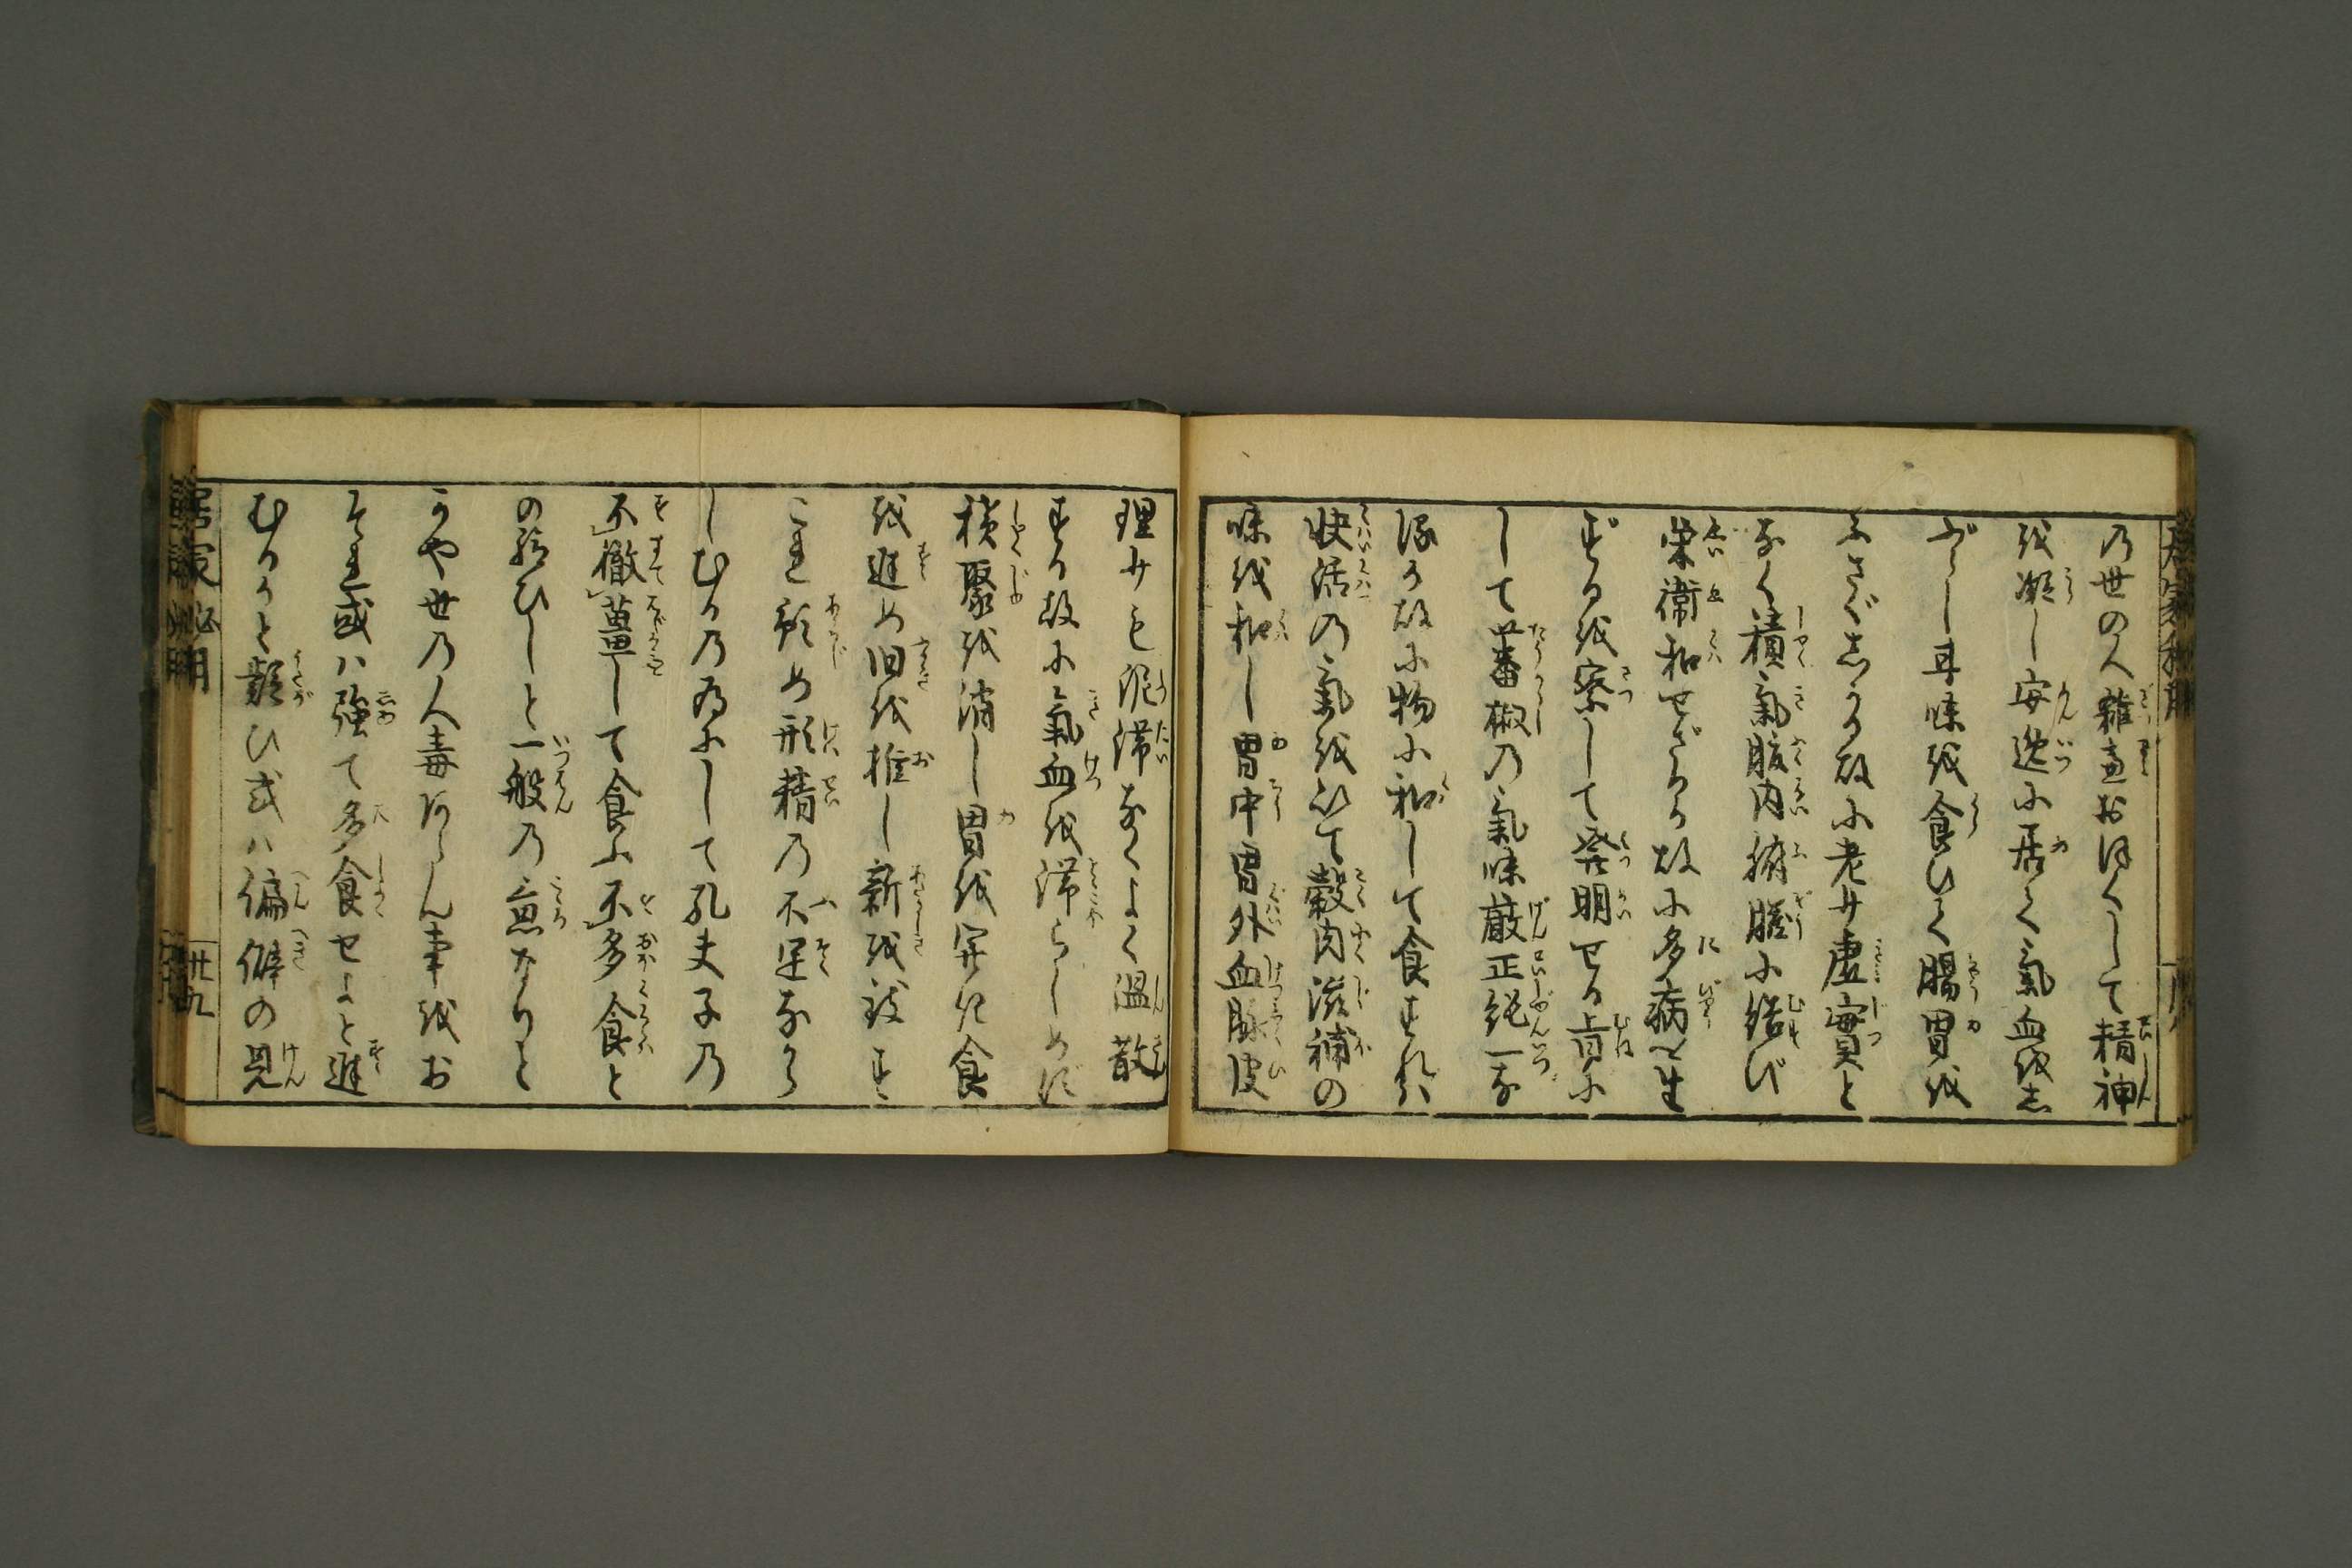 乃世の人雑慮おほくして精神
を凝し安逸に居て氣血を
ぶらし耳味を食ひて腸胃を
ふさぐ故に老少虚實と
なく積氣腹内臓腑に結び
栄衛和せざる故に多病を生
ずるを察して発明せる旨に
して蕃椒の氣味厳正純一な
る故に物に和して食すれハ
快活の氣を以て穀肉滋補の
味を和し胃中胃外血脉皮
理少も泥滞なくよく温散
する故に氣血を滞らしめず
積聚を消し胃を開き食
を進め旧を推し新を致す
これ形精の不足なから
しむるの為にして孔夫子の
不徹薑して食ふ不多食と
の給ひしと一般の意なりと
かや世の人毒あらん事をお
それ或ハ強て多食せよと進
むるかと疑ひ或ハ偏僻の見
卅九